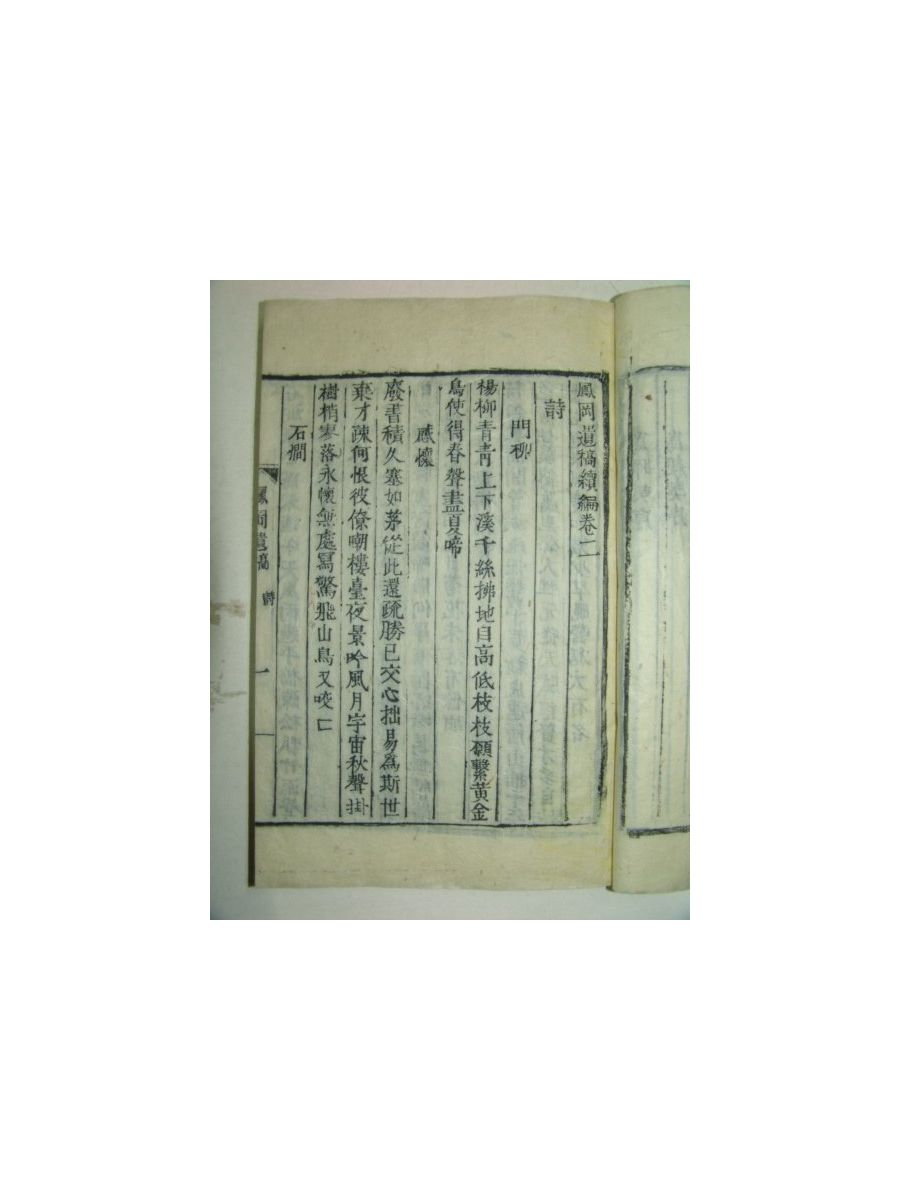 鳳岡遺稿續編卷二
詩
門柳
楊柳青青上下溪千絲拂地自高低枝枝願繫黃金
鳥使得春聲盡夏啼
感懷
廢書積久塞如茅從此還疏勝已交心拙易為斯世
棄才疎何恨彼僚嘲樓臺夜景吟風月宇宙秋聲掛
樹梢寥落永懷無處寫驚飛山鳥又咬
石澗
鳳岡遺稿 詩 一